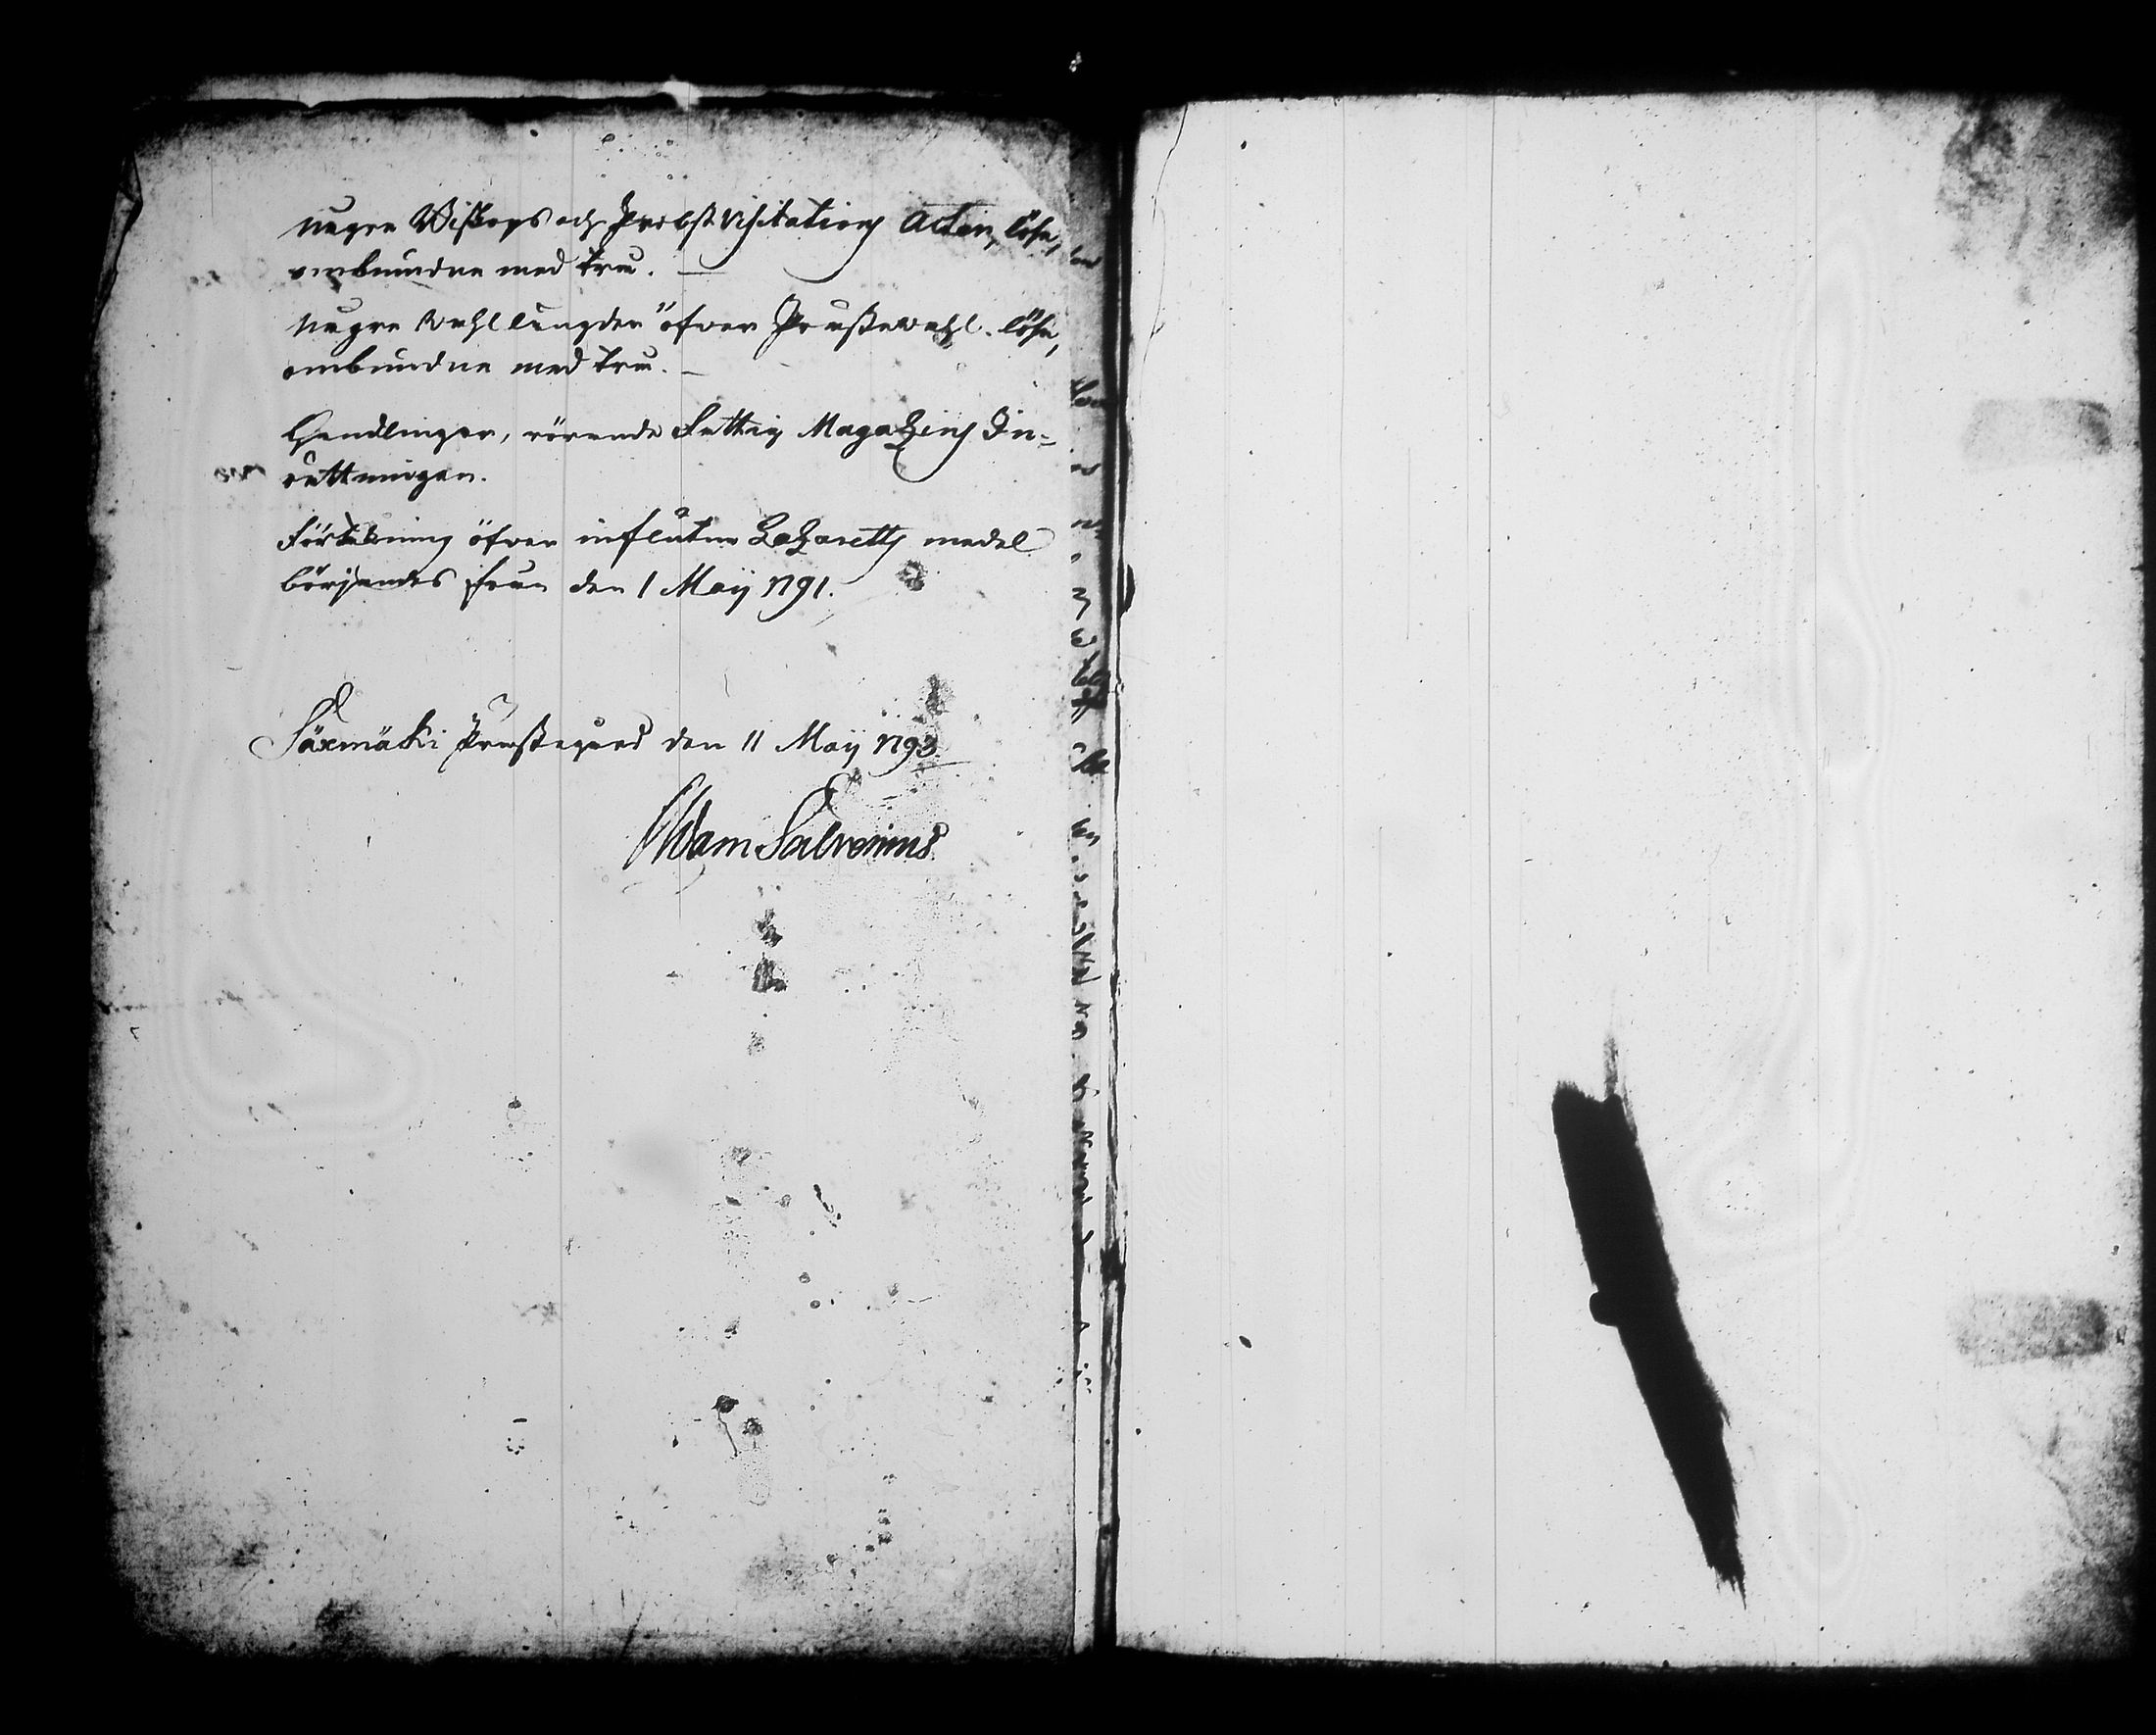 Någre Biskops och Probst Visitations Acter, löse,
ombundne med trå.
Någre Wahllängder öfwer Prästewahl. löse,
ombundne med trå.
Handlingar, rörande Fattig Magazins In-
rättningen.
Förtekning öfwer influtne Lazaretts medel
börjandes från den 1 Maij 1791.
Säxmäki Prästegård den 11 Maij 1793.
Adam Salvenius